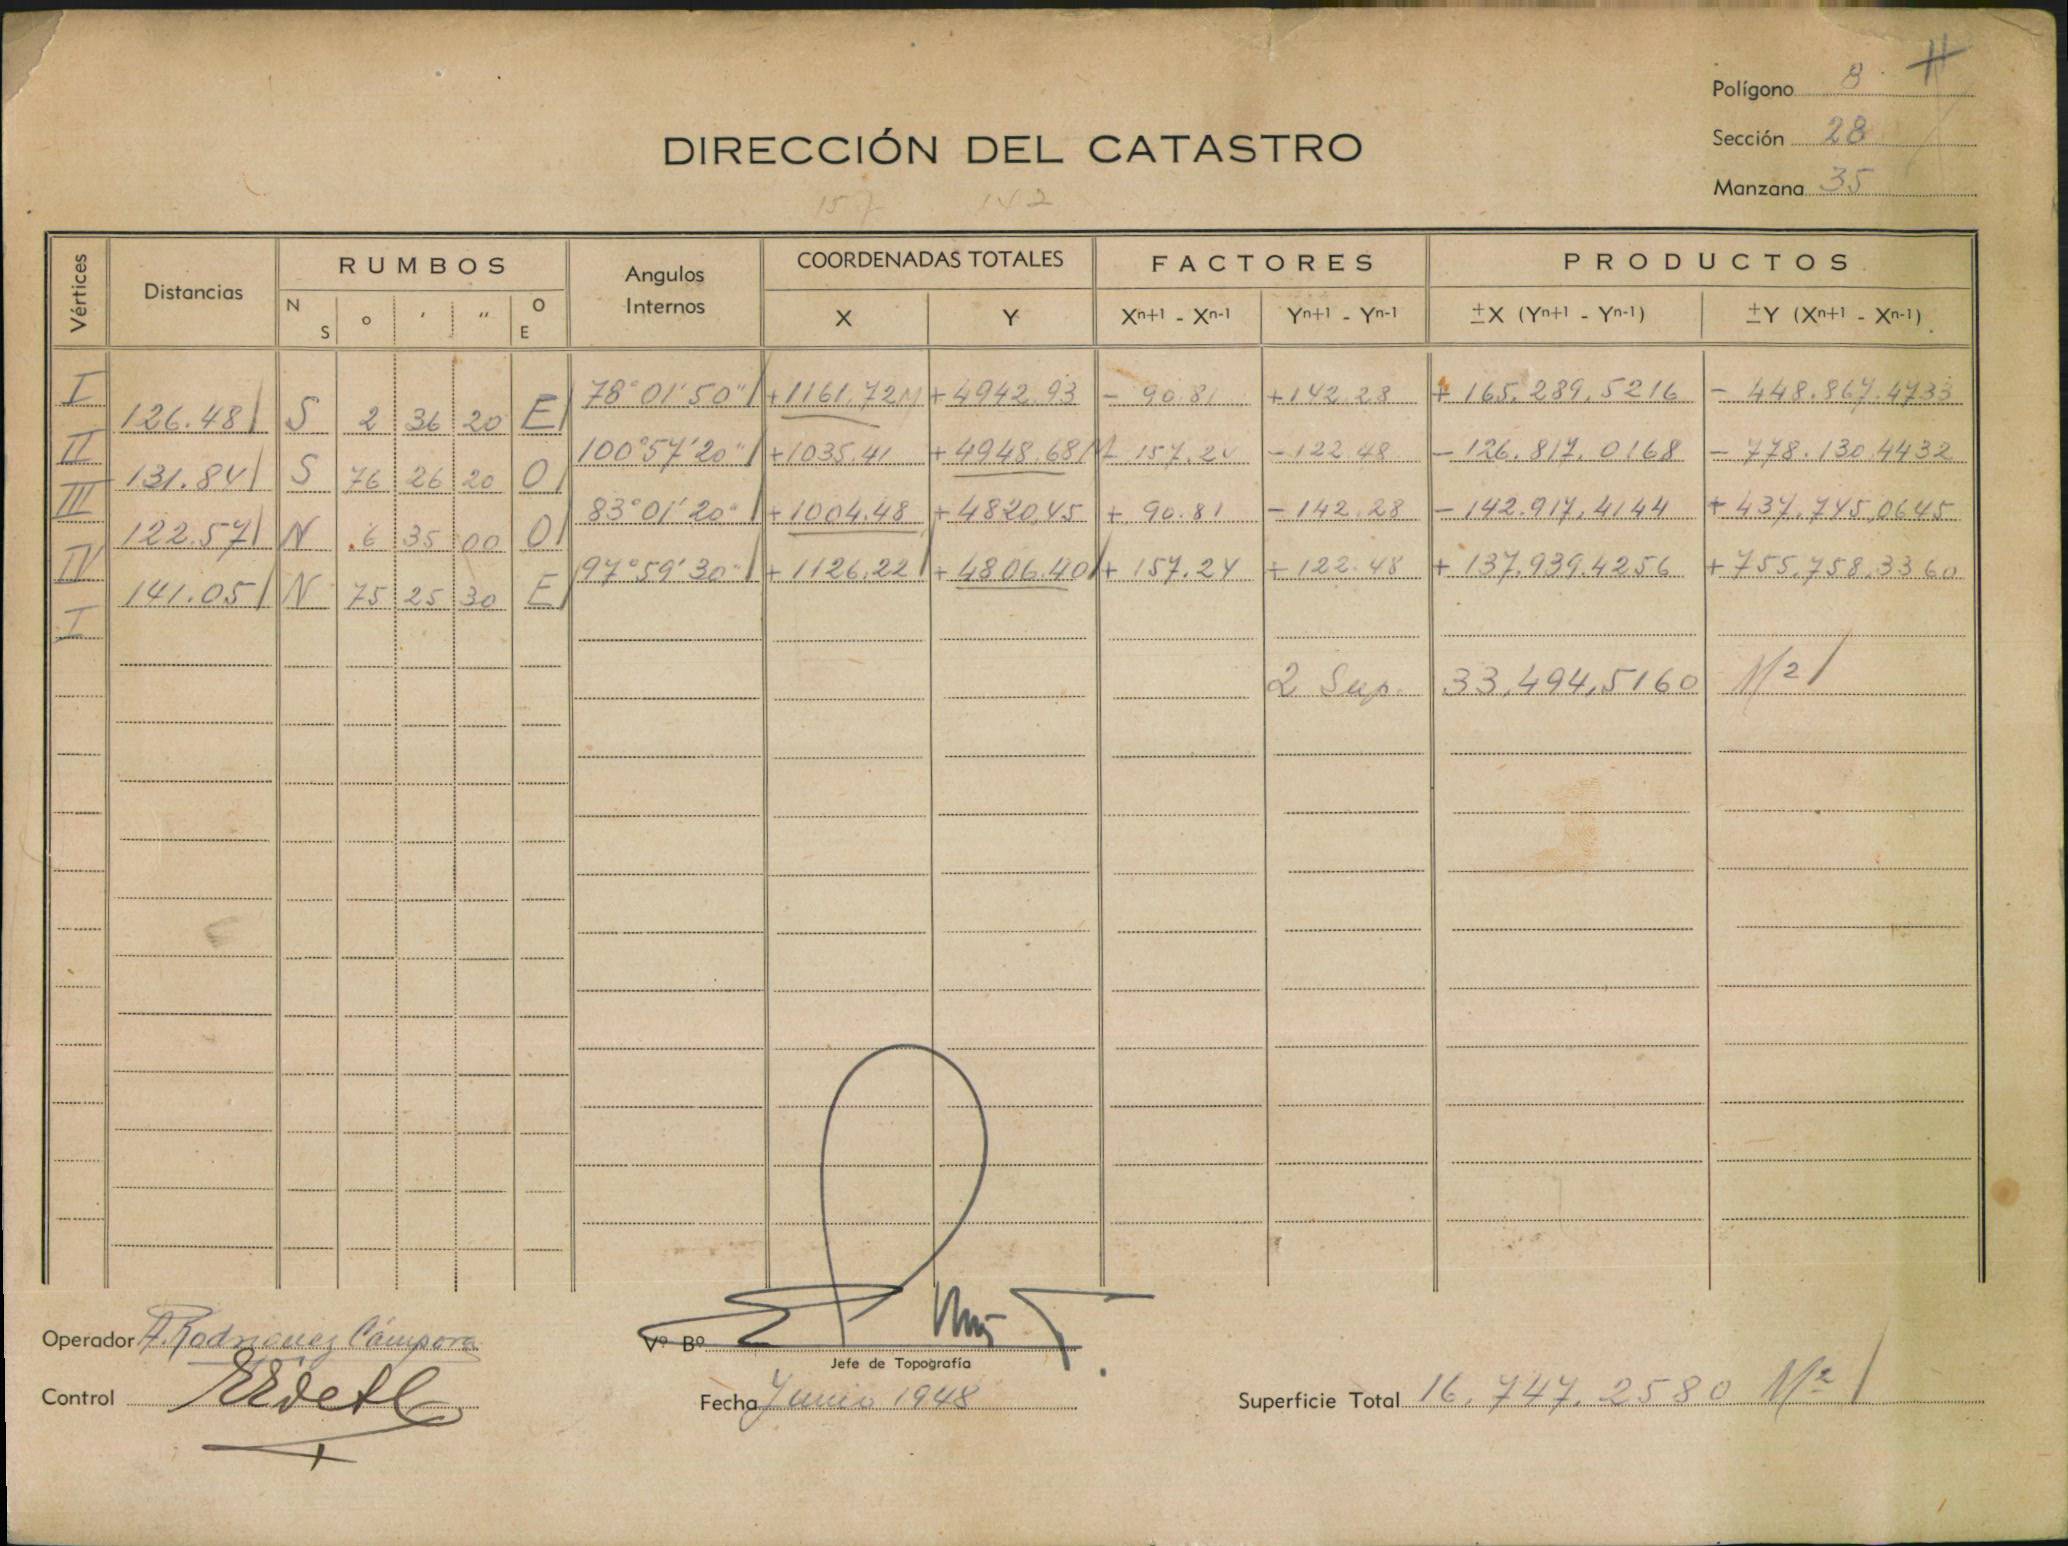 Polígono 8
DIRECCIÓN DEL CATASTRO
Sección 28
Manzana 35
157 142
Vértices
Distancias
RUMBOS
N S ° ′ ″ O E
Angulos Internos
COORDENADAS TOTALES
X Y
FACTORES
Xn+1 - Xn-1 Yn+1 - Yn-1
PRODUCTOS
±X (Yn+1 - Yn-1) ±Y (Xn+1 - Xn-1)
I 78°01'50" +1161.72 +4942.93 - 90.81 +142.28 + 165.289,5216 - 448.867.4733
126.48 S 2 36 20 E
II 100°57'20" +1035.41 +4948.68 - 157.24 -122.48 - 126.817.0168 - 778.130.4432
131.84 S 76 26 20 O
III 83°01'20" +1004.48 +4820.45 + 90.81 -142.28 - 142.917.4144 + 437.745,0645
122.57 N 6 35 00 O
IV 97°59'30" + 1126.22 + 4806.40 + 157.24 + 122.48 + 137.939.4256 + 755.758.3360
141.05 N 75 25 30 E
I
2 Sup. 33.494,5160 M2
Operador A. Rodriguez Cámpora
Vº Bº
Jefe de Topografía
Control
Fecha Junio 1948
Superficie Total 16.747.2580 M2